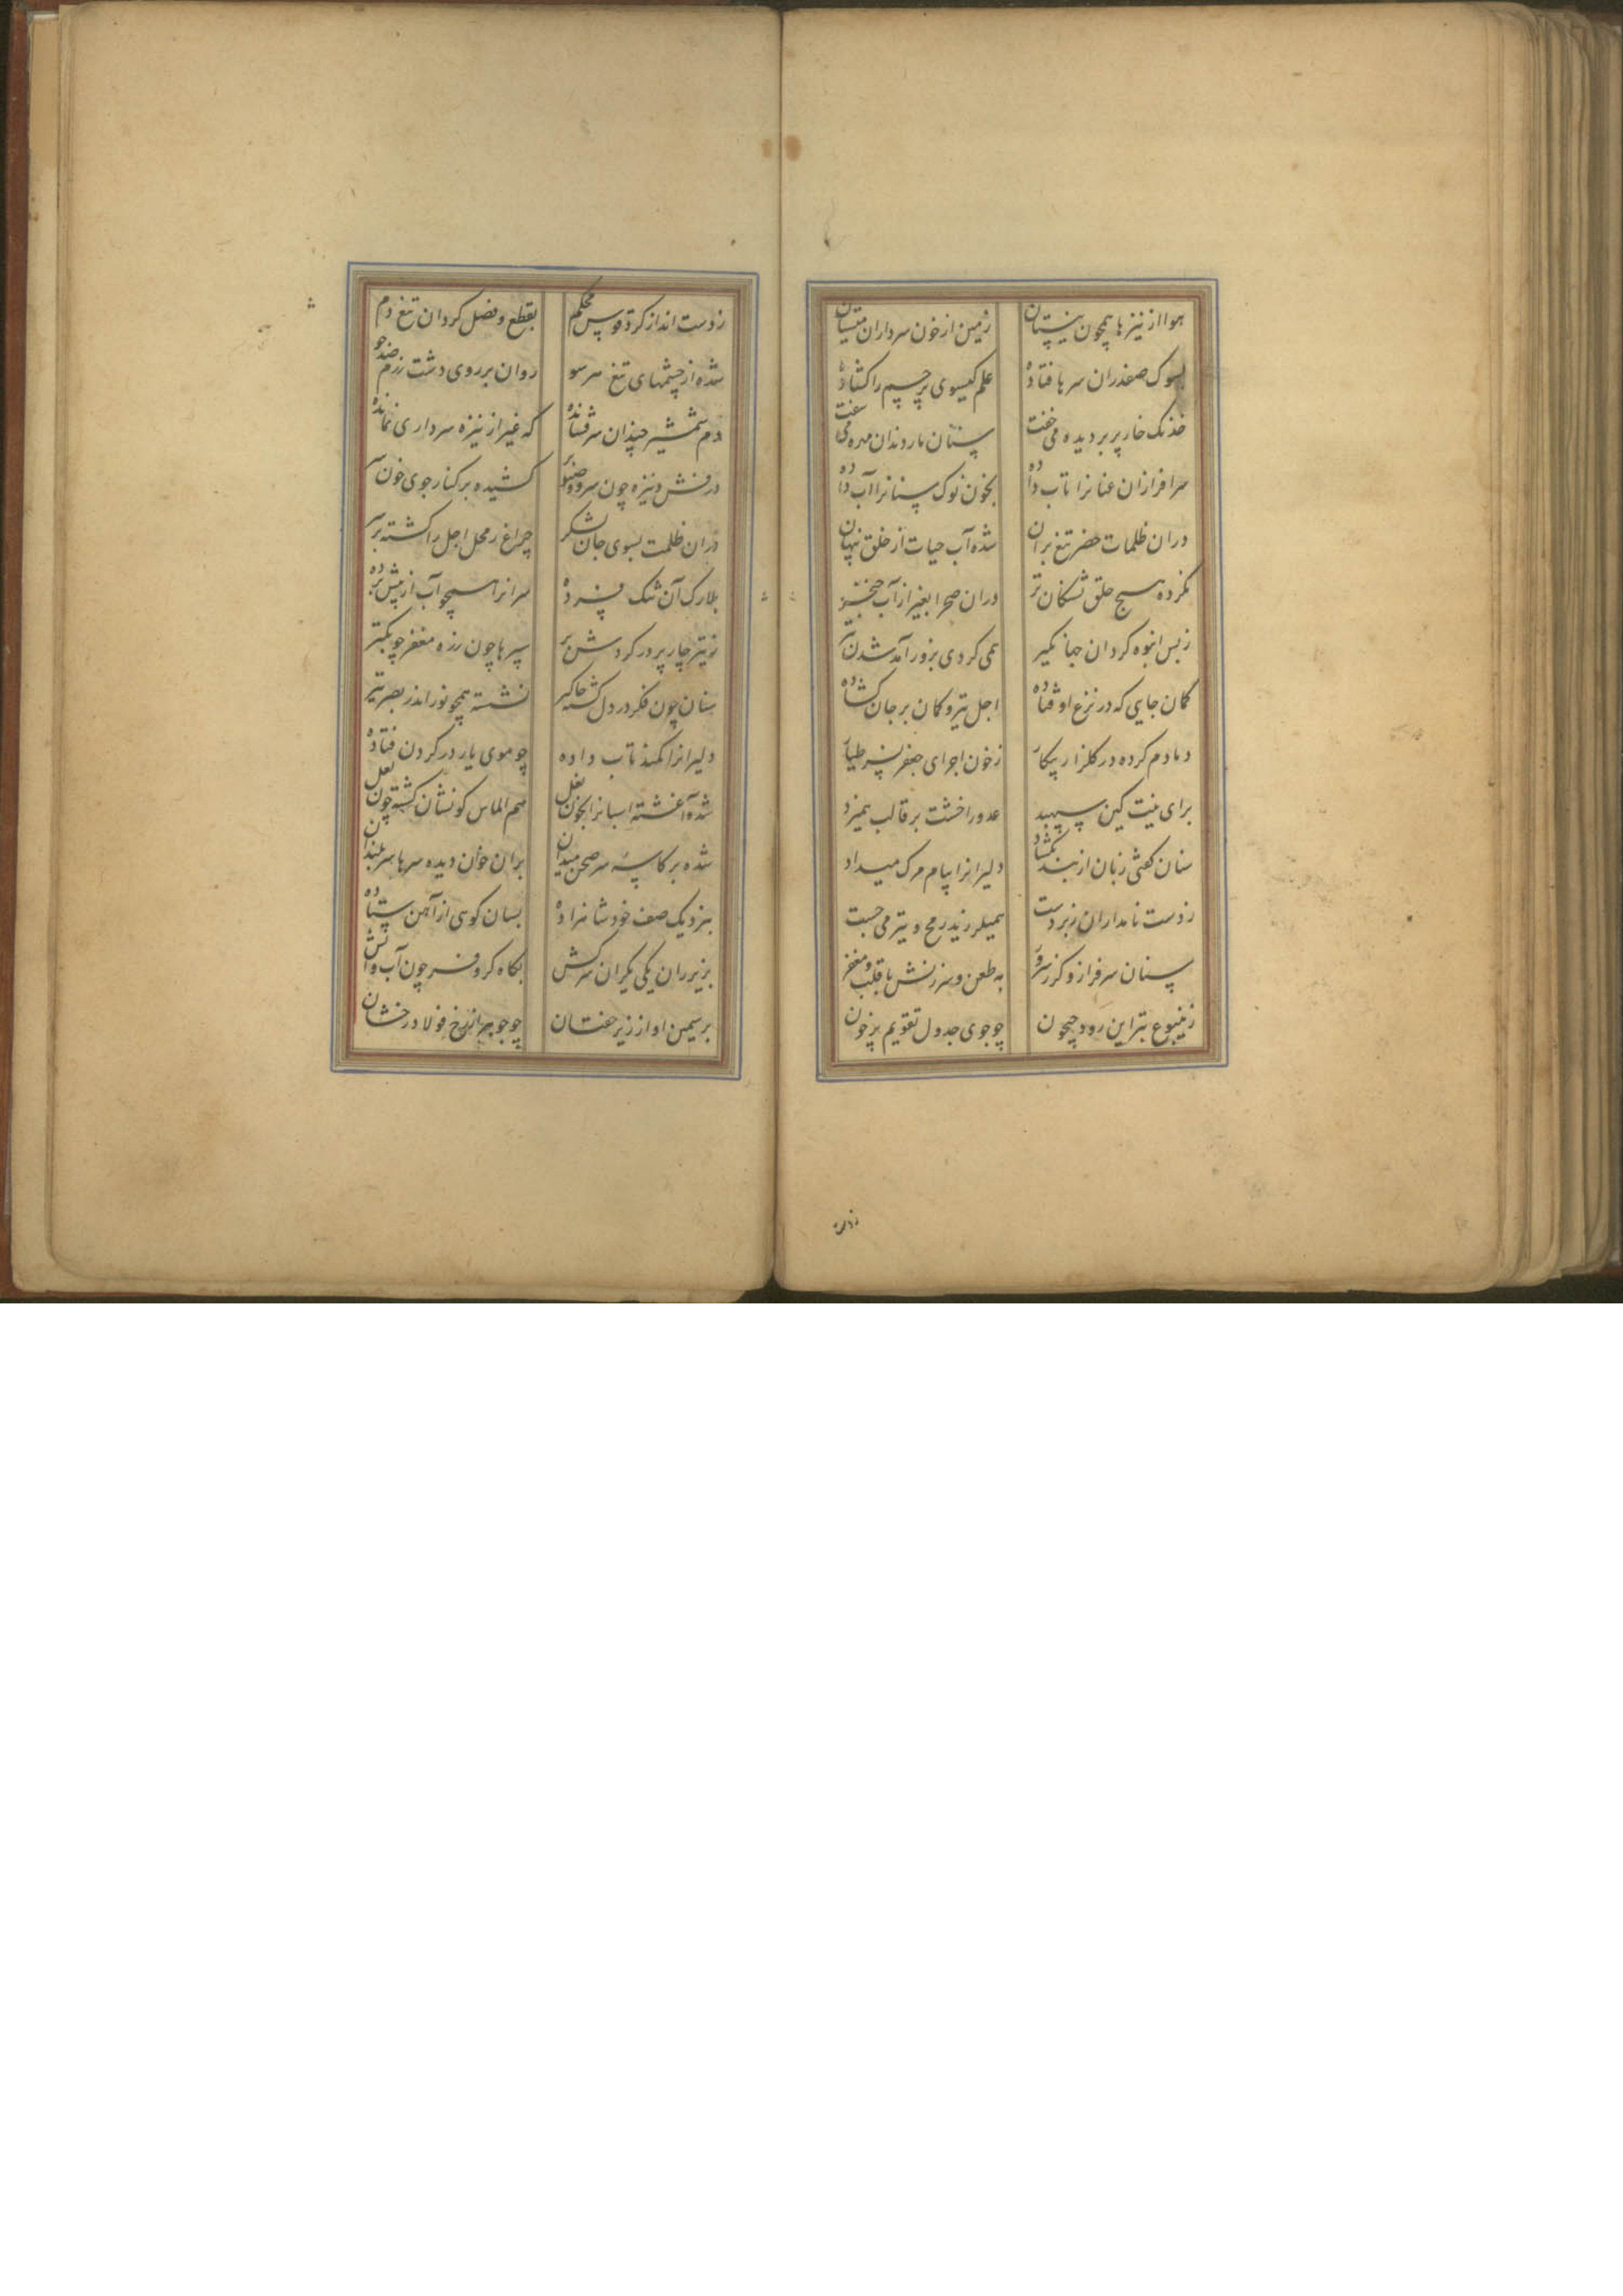 هوا از نیزها همچون نیستان
زمین از خون سرداران میستان
بسوک صفدران سرها فتاده
علم کیسوی پرچم را کشاده
خدنک خار پر بر دیده می خفت
سنان مار دندان مهره می سفت
سرافرازان عنانرا تاب داده
بخون نوک سنانرا آب داده
دران ظلمات خضر تیغ بران
شده آب حیات از خلق پنهان
نکرده هیچ حلق تشنکان تر
دران صحرا بغیر از آب خنجر
ز بس انبوه کردان جهانکیر
همی کردی بزور آمد شدن تیر
کمان جایی که در نزع اوفتاده
اجل تیر و کمان بر جان کشاده
دمادم کرده در کلزار پیکار
ز خون اجرای جعفر طیار
برای نیت کین سپهبد
عدو را خشت بر قالب همیزد
سنان کفتی زبان از بند بکشاد
دلیرانرا پیام مرک میداد
ز دست نامداران زبردست
همیلرزید رمح و تیر می جست
سنان سرفراز و کرز سرور
به طعن و سرزنش با قلب و مغفر
ز ینبوع تبر این رود جیحون
چو جوی جدول تقویم پرخون
ز دست انداز کرد قوس محکم
بقطع و فصل کردان تیغ دم
شده از چشمهای تیغ هر سو
روان بر روی دشت رزم صد جو
دم شمشیر چندان سر فشانده
که غیر از نیزه سرداری نمانده
درفش و نیزه چون سرو و صنوبر
کشیده بر کنار جوی خون سر
دران ظلمت بسوی جان لشکر
چراغ رمح اجل را کشته رهبر
بلارک آن تنک فسرده
سرانرا همچو آب از پیش برده
ز تیر چار پر در کردش
سپرها چون زره مغفر چو بکتر
سنان چون فکر در دل کشته جاکیر
نشسته همچو نور اندر بصر تیر
دلیرانرا کمند تاب داده
چو موی یار در کردن فتاده
شده آغشته اسبانرا بخون نعل
سم الماس کونشان کشته چون لعل
شده بر کاسه سر صحن میدان
بران خوان دیده سرها سربلندان
بنزدیک صف خود شاهزاده
بسان کوهی از آهن ستاده
بزیر ران یکی یکران سرکش
بکاه کر و فر چون آب و آتش
بر سیمین او از زیر خفتان
چو جوهر از رخ فولاد رخشان